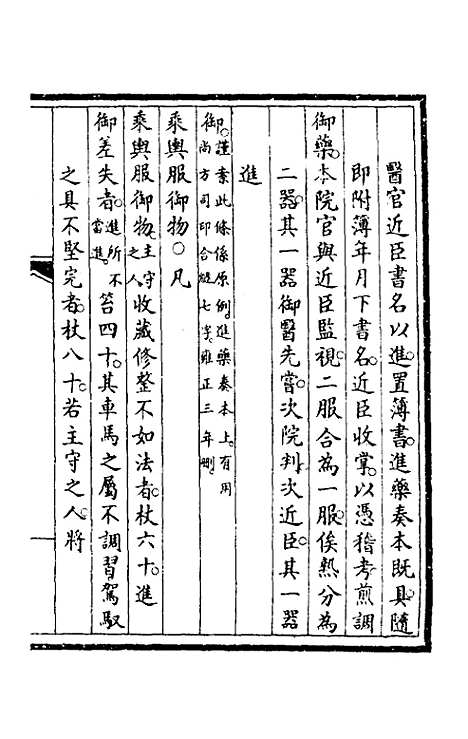 醫官近臣書名以進置簿書進藥奏本既具隨
即附簿年月下書名近臣收掌以憑稽考煎調
御藥本院官與近臣監視二服合為一服俟熟分為
二器其一器御醫先嘗次院判次近臣其一器
進
謹案此條係原例進藥奏本上有用
御尚方司印合縫七字雍正三年刪
乘輿服御物○凡
乘輿服御物主守之人收藏修整不如法者杖六十進
御差失者進所不當進笞四十其車馬之屬不調習駕馭
之具不堅完者杖八十若主守之人將